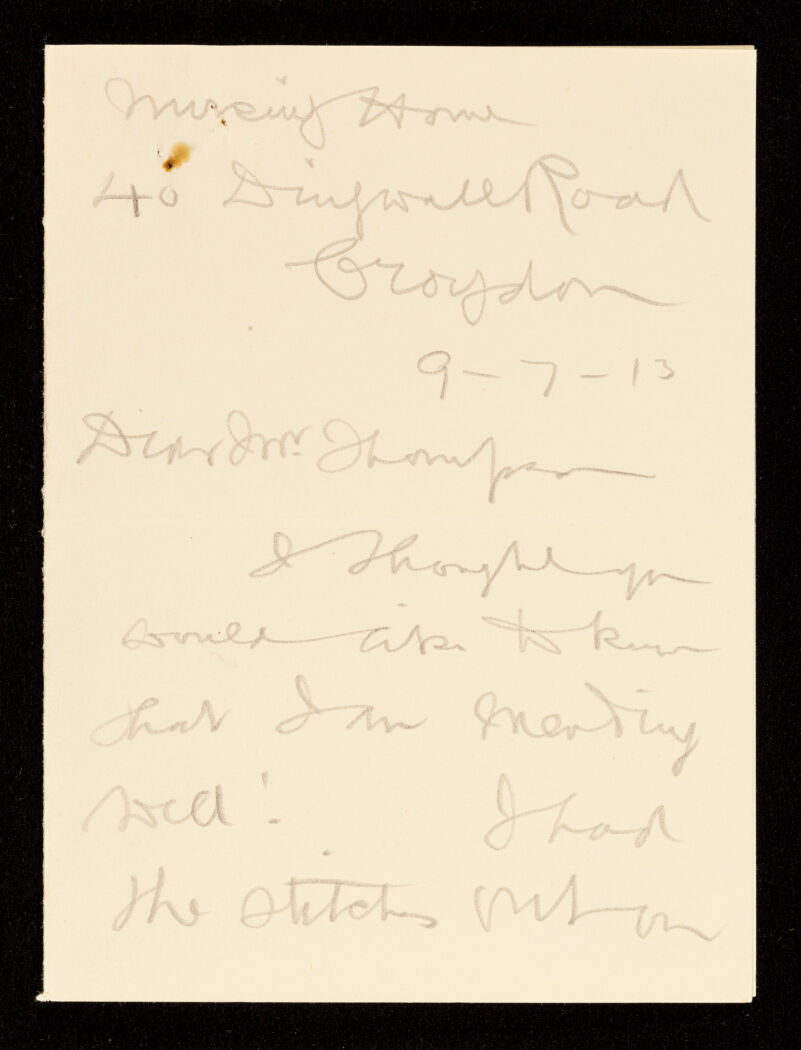 Nursing Home
40 Dingwall Road
Croydon
9-7-13
Dear Mr. Thompson
I thought you
would like to know
that I am mending
well!. I had
the stitches out on